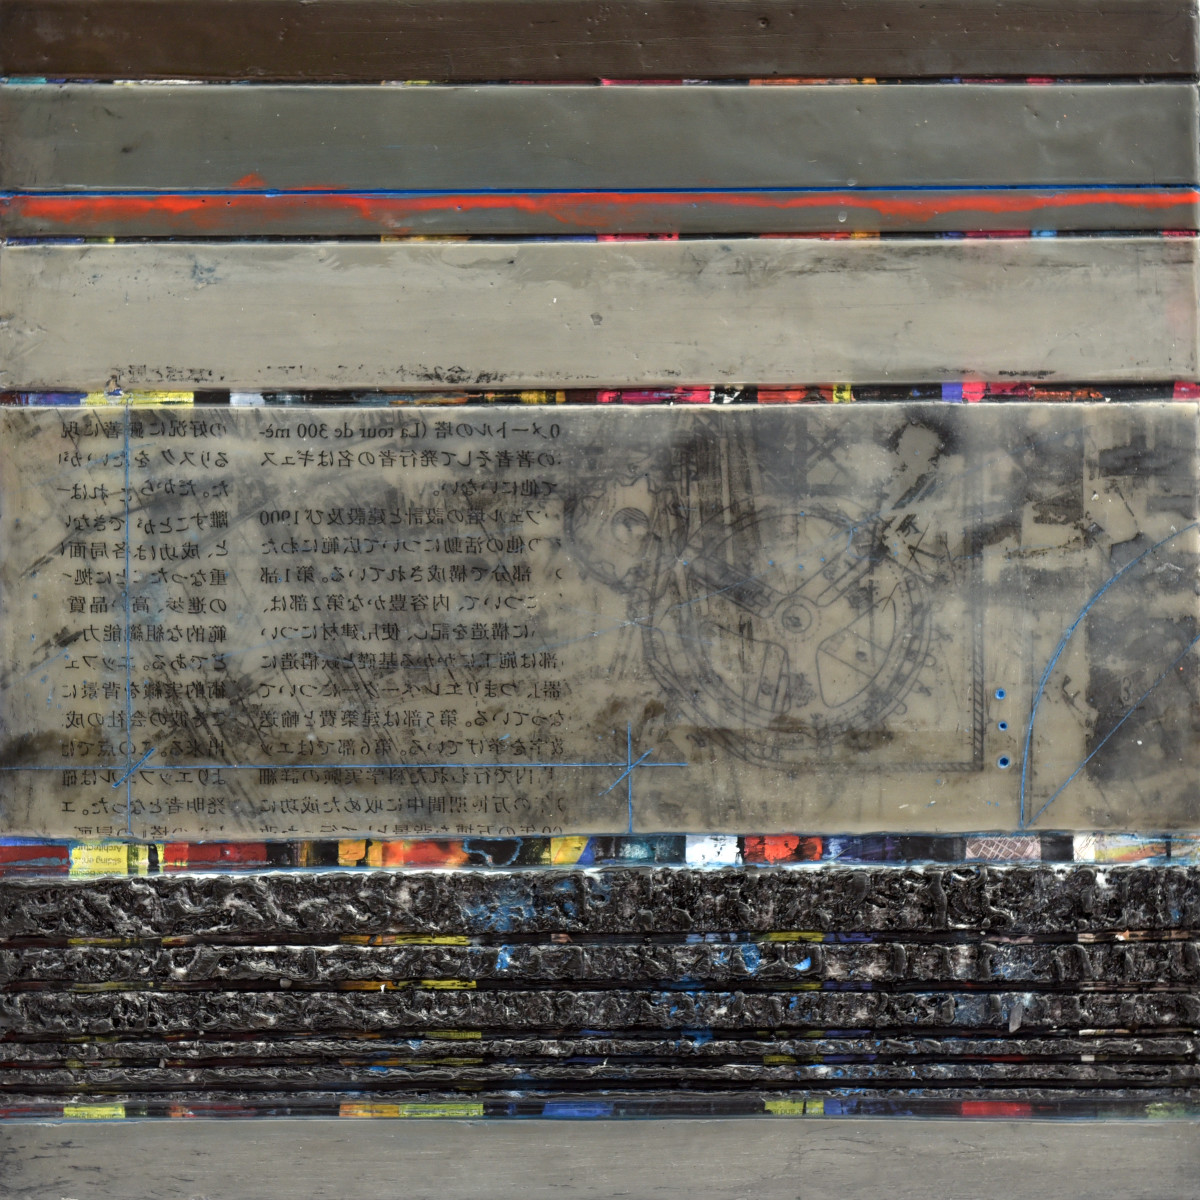 0メートルの塔 (La tour de 300 mè-
の著者そして発行者の名はギュス
て他にいない。
フェル塔の設計と建設及び1900
の他の活動について広範にわた
部分で構成されている。第1部
ついて、内容豊かな第2部は、
に構造を記し、使用建材につい
部は施工にかかる基礎と鉄構造に
器」、つまりエレベーターについて
なっている。第5部は建築費と輸送
字を挙げている。第6部ではエッ
内で行われた科学実験の詳細
の万博期間中に収めた成功に
の好況に顕著に現
るリスクをたいがい
た。だからこれは一
離すことができない
と、成功は各局面
重なったことに拠っ
の進歩、高い品質
範的な組織能力
どである。エッフェ
術的実績を背景に
こそ彼の会社の成
出来る。この点では
よりエッフェルは
発明者となった。エ
Architectur